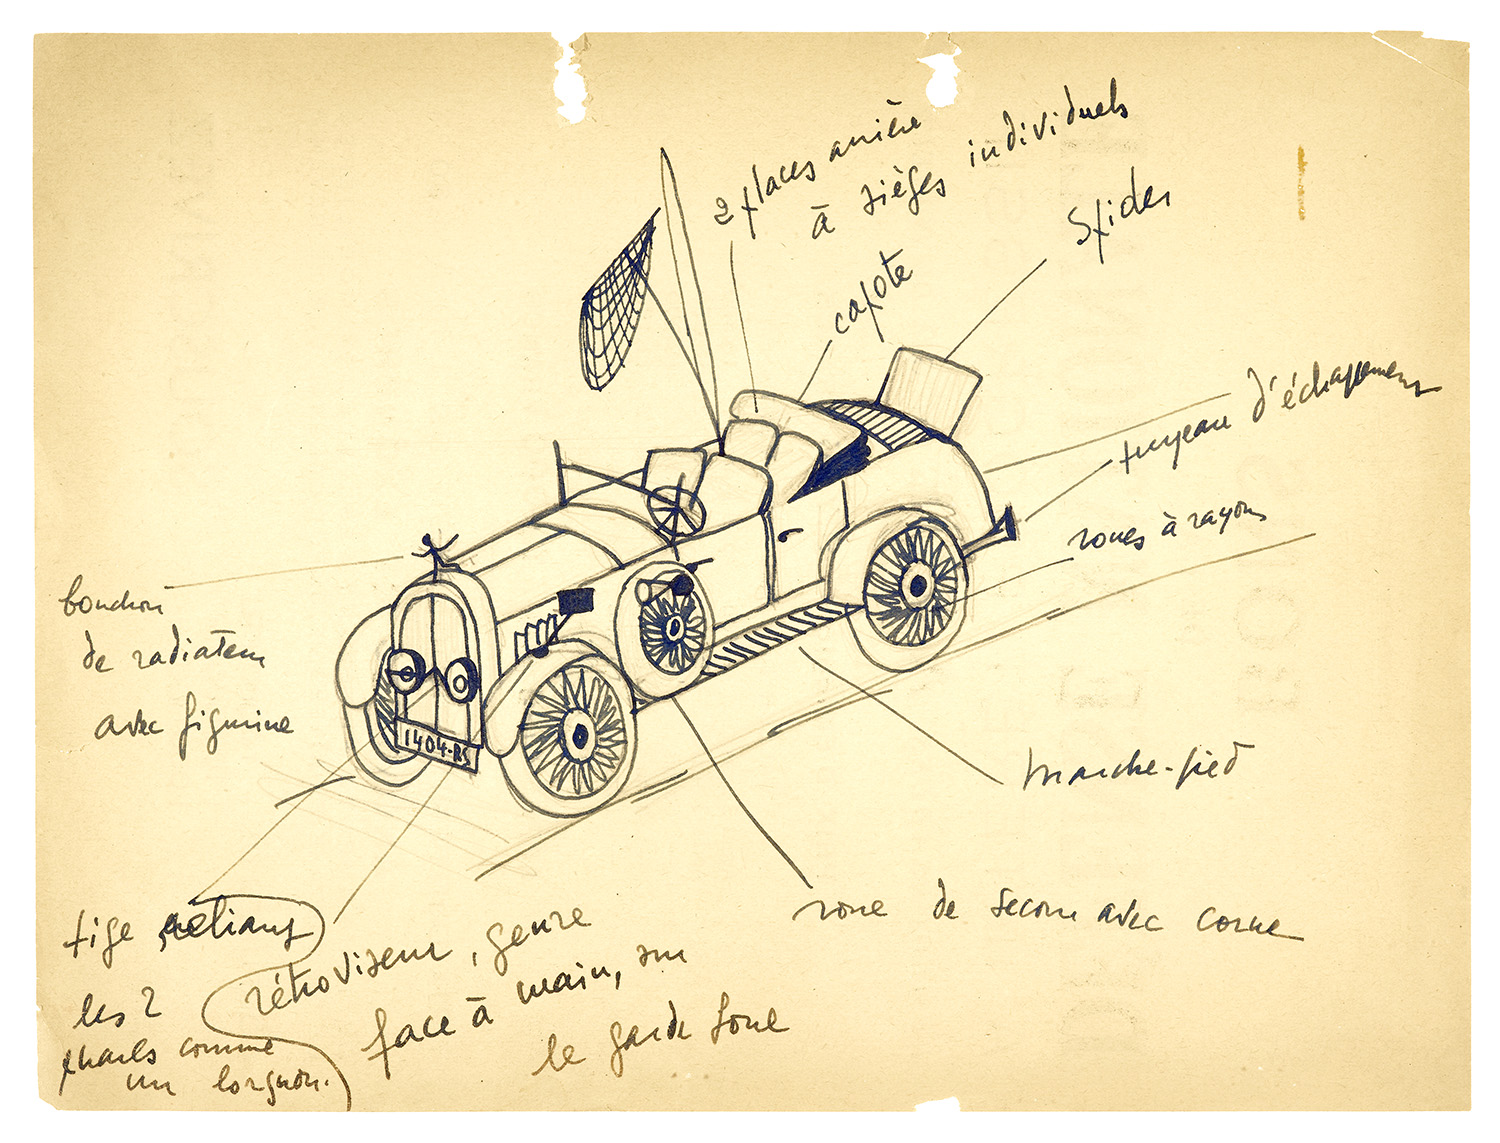 2 places arrière
à sièges individuels
Spider
capote
tuyeau d'échappement
roues à rayons
bouchon
de radiateur
avec figurine
1404-RS
marche-pied
roue de secour avec corne
tige reliant
les 2
phares comme
un lorgnon.
rétroviseur, genre
face à main, sur
le garde boue